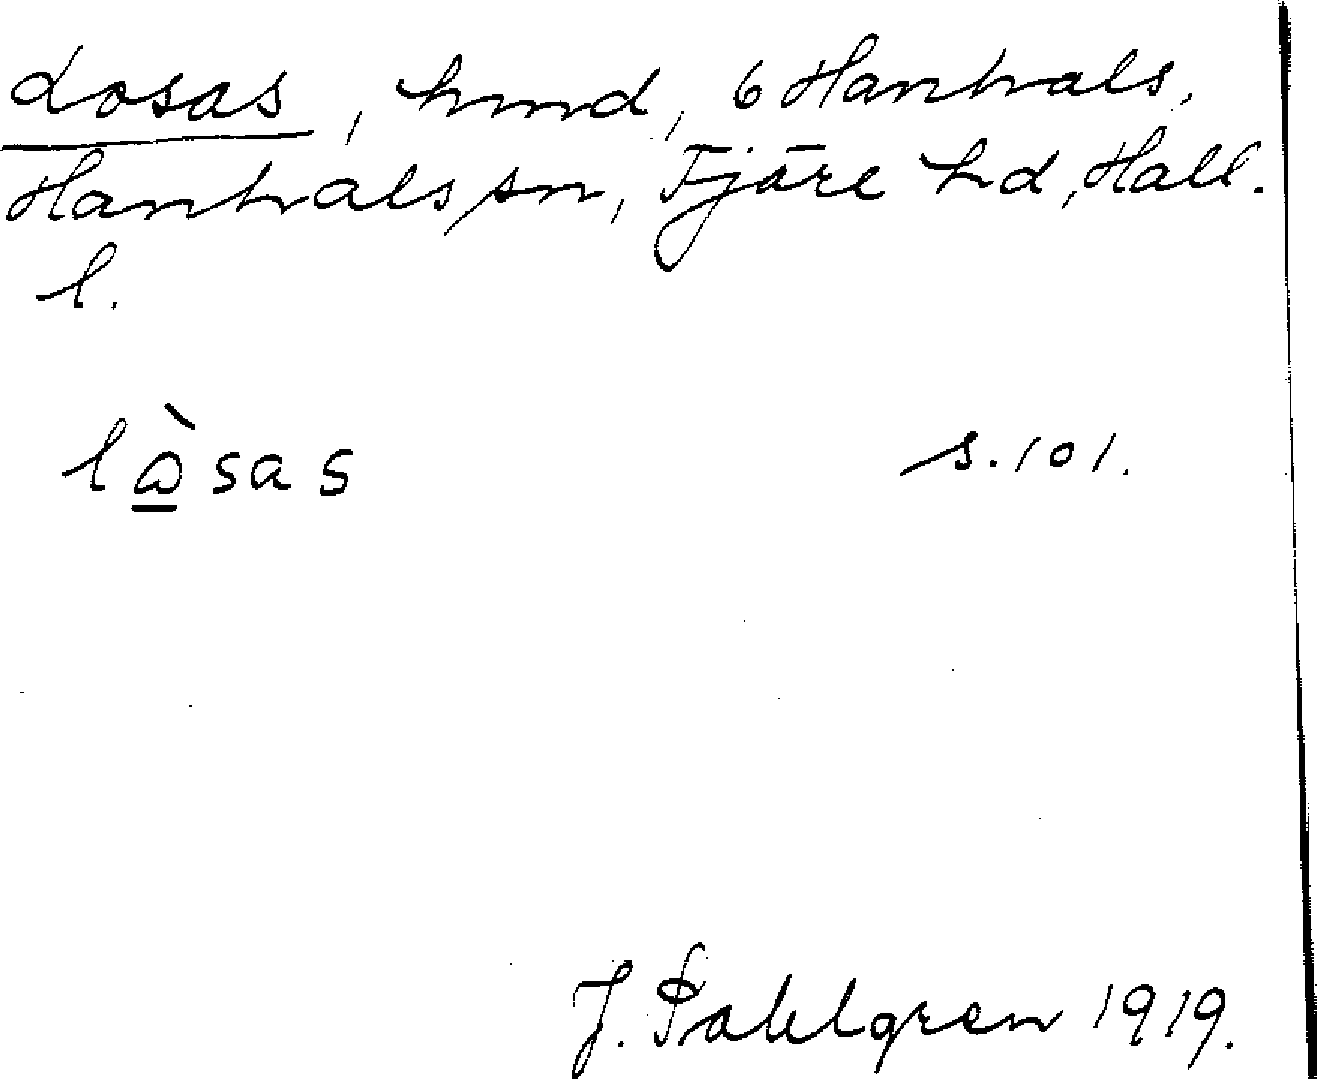 Losas, hmd, 6 Hanhals,
Hanhals sn, Fjäre hd, Hall.
l.
lò̲sas s. 101.
J. Sahlgren 1919.